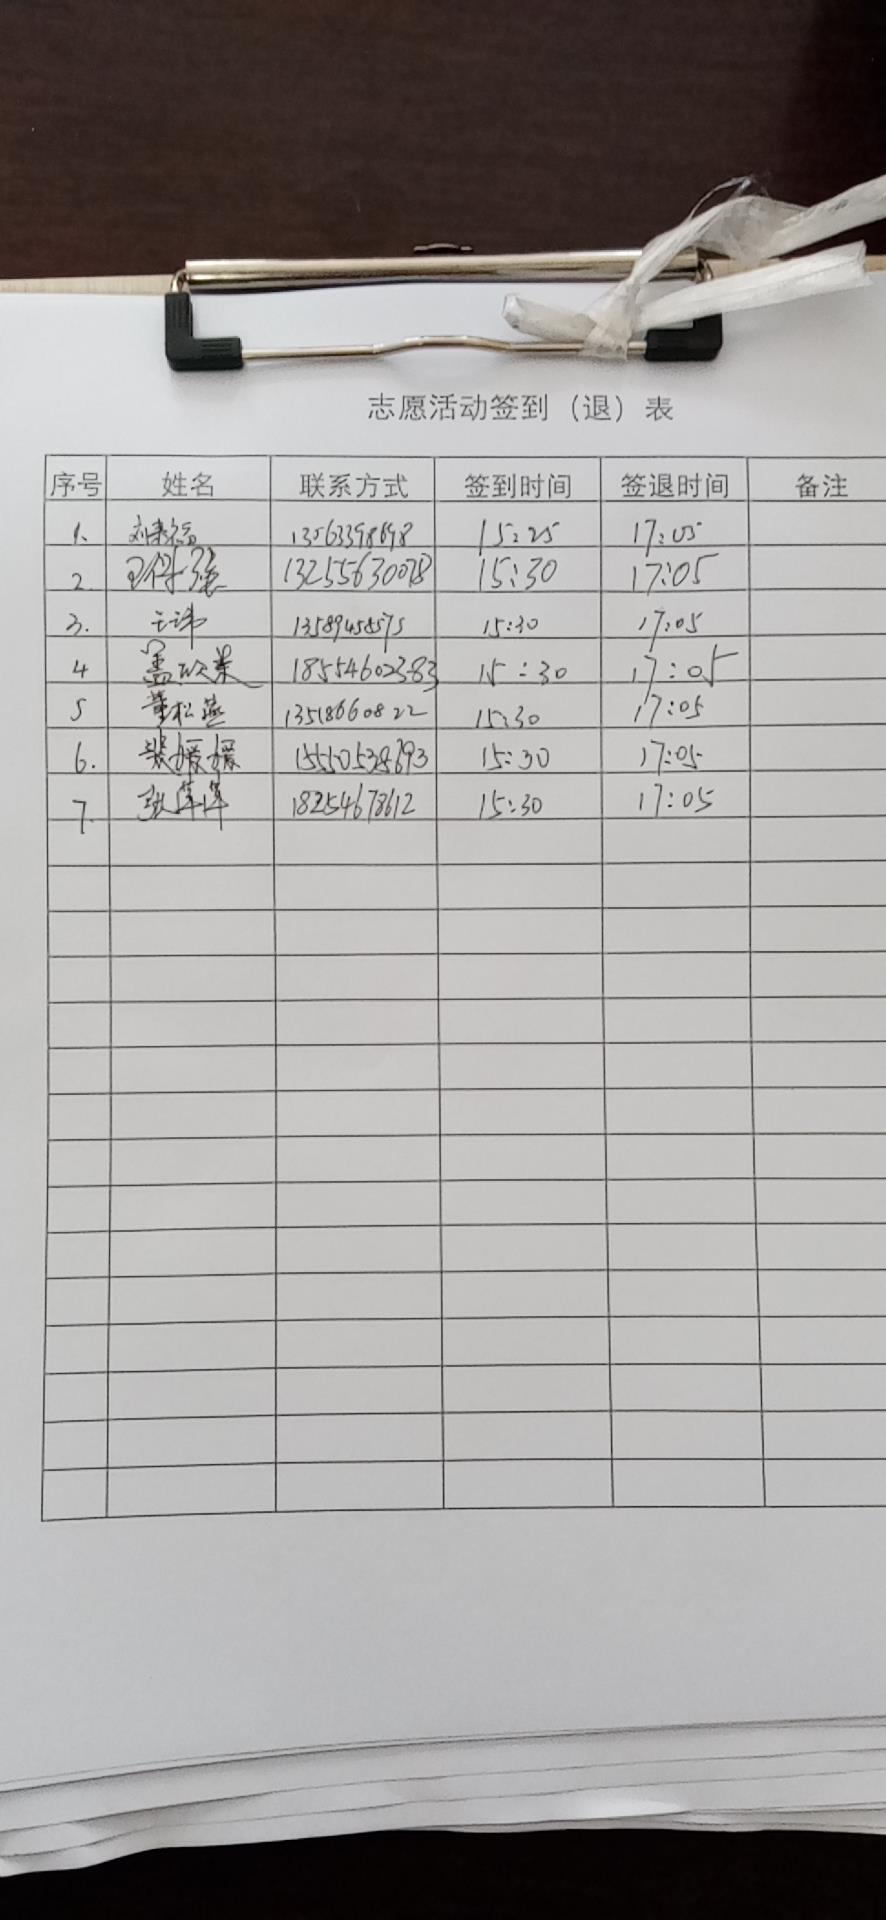 志愿活动签到（退）表
序号 姓名 联系方式 签到时间 签退时间 备注
1. 13563398698 15:25 17:05
2. 13255630078 15:30 17:05
3. 王玮 13589458575 15:30 17:05
4 盖欣荣 18554602383 15:30 17:05
5 董松燕 13518660822 15:30 17:05
6. 裴媛媛 15550538693 15:30 17:05
7. 张萍萍 18254678612 15:30 17:05